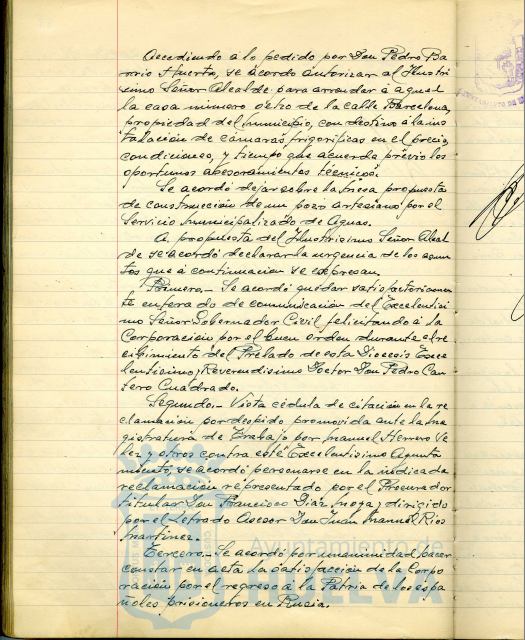 Accediendo á lo pedido por Don Pedro Ba
rrio Huerta, se acordó autorizar al Ilustrí
simo Señor Alcalde para arrendar á aquel
la casa número ocho de la calle Barcelona,
propiedad del Municipio, con destino á la ins
talación de cámaras frigoríficas en el precio,
condiciones, y tiempo que acuerda previo los
oportunos asesoramientos técnicos.
Se acordó dejar sobre la Mesa propuesta
de construcción de un pozo artesiano por el
Servicio Municipalizado de Aguas.
A propuesta del Ilustrísimo Señor Alcal
de se acordó declarar la urgencia de los asun
tos que á continuación se expresan.
Primero.- Se acordó quedar satisfactoriamen
te enterado de comunicación del Excelentísi
mo Señor Gobernador Civil felicitando á la
Corporación por el buen orden durante el re
cibimiento del Prelado de esta Diocesis Exce
lentísimo y Reverendísimo Doctor Don Pedro Can
tero Cuadrado.
Segundo.- Vista cédula de citación en la re
clamación por despido promovida ante la Ma
gistratura de Trabajo por Manuel Herrero Ve
lez y otros contra este Excelentísimo Ayunta
miento, se acordó personarse en la indicada
reclamación representado por el Procurador
titular Don Francisco Díaz y dirigido
por el Letrado Asesor Don Juan Manuel Rios
Martinez.
Tercero.- Se acordó por unanimidad hacer
constar en acta la satisfacción de la Corpo
ración por el regreso á la Patria de los espa
ñoles prisioneros en Rusia.
Ayuntamiento de
HUELVA